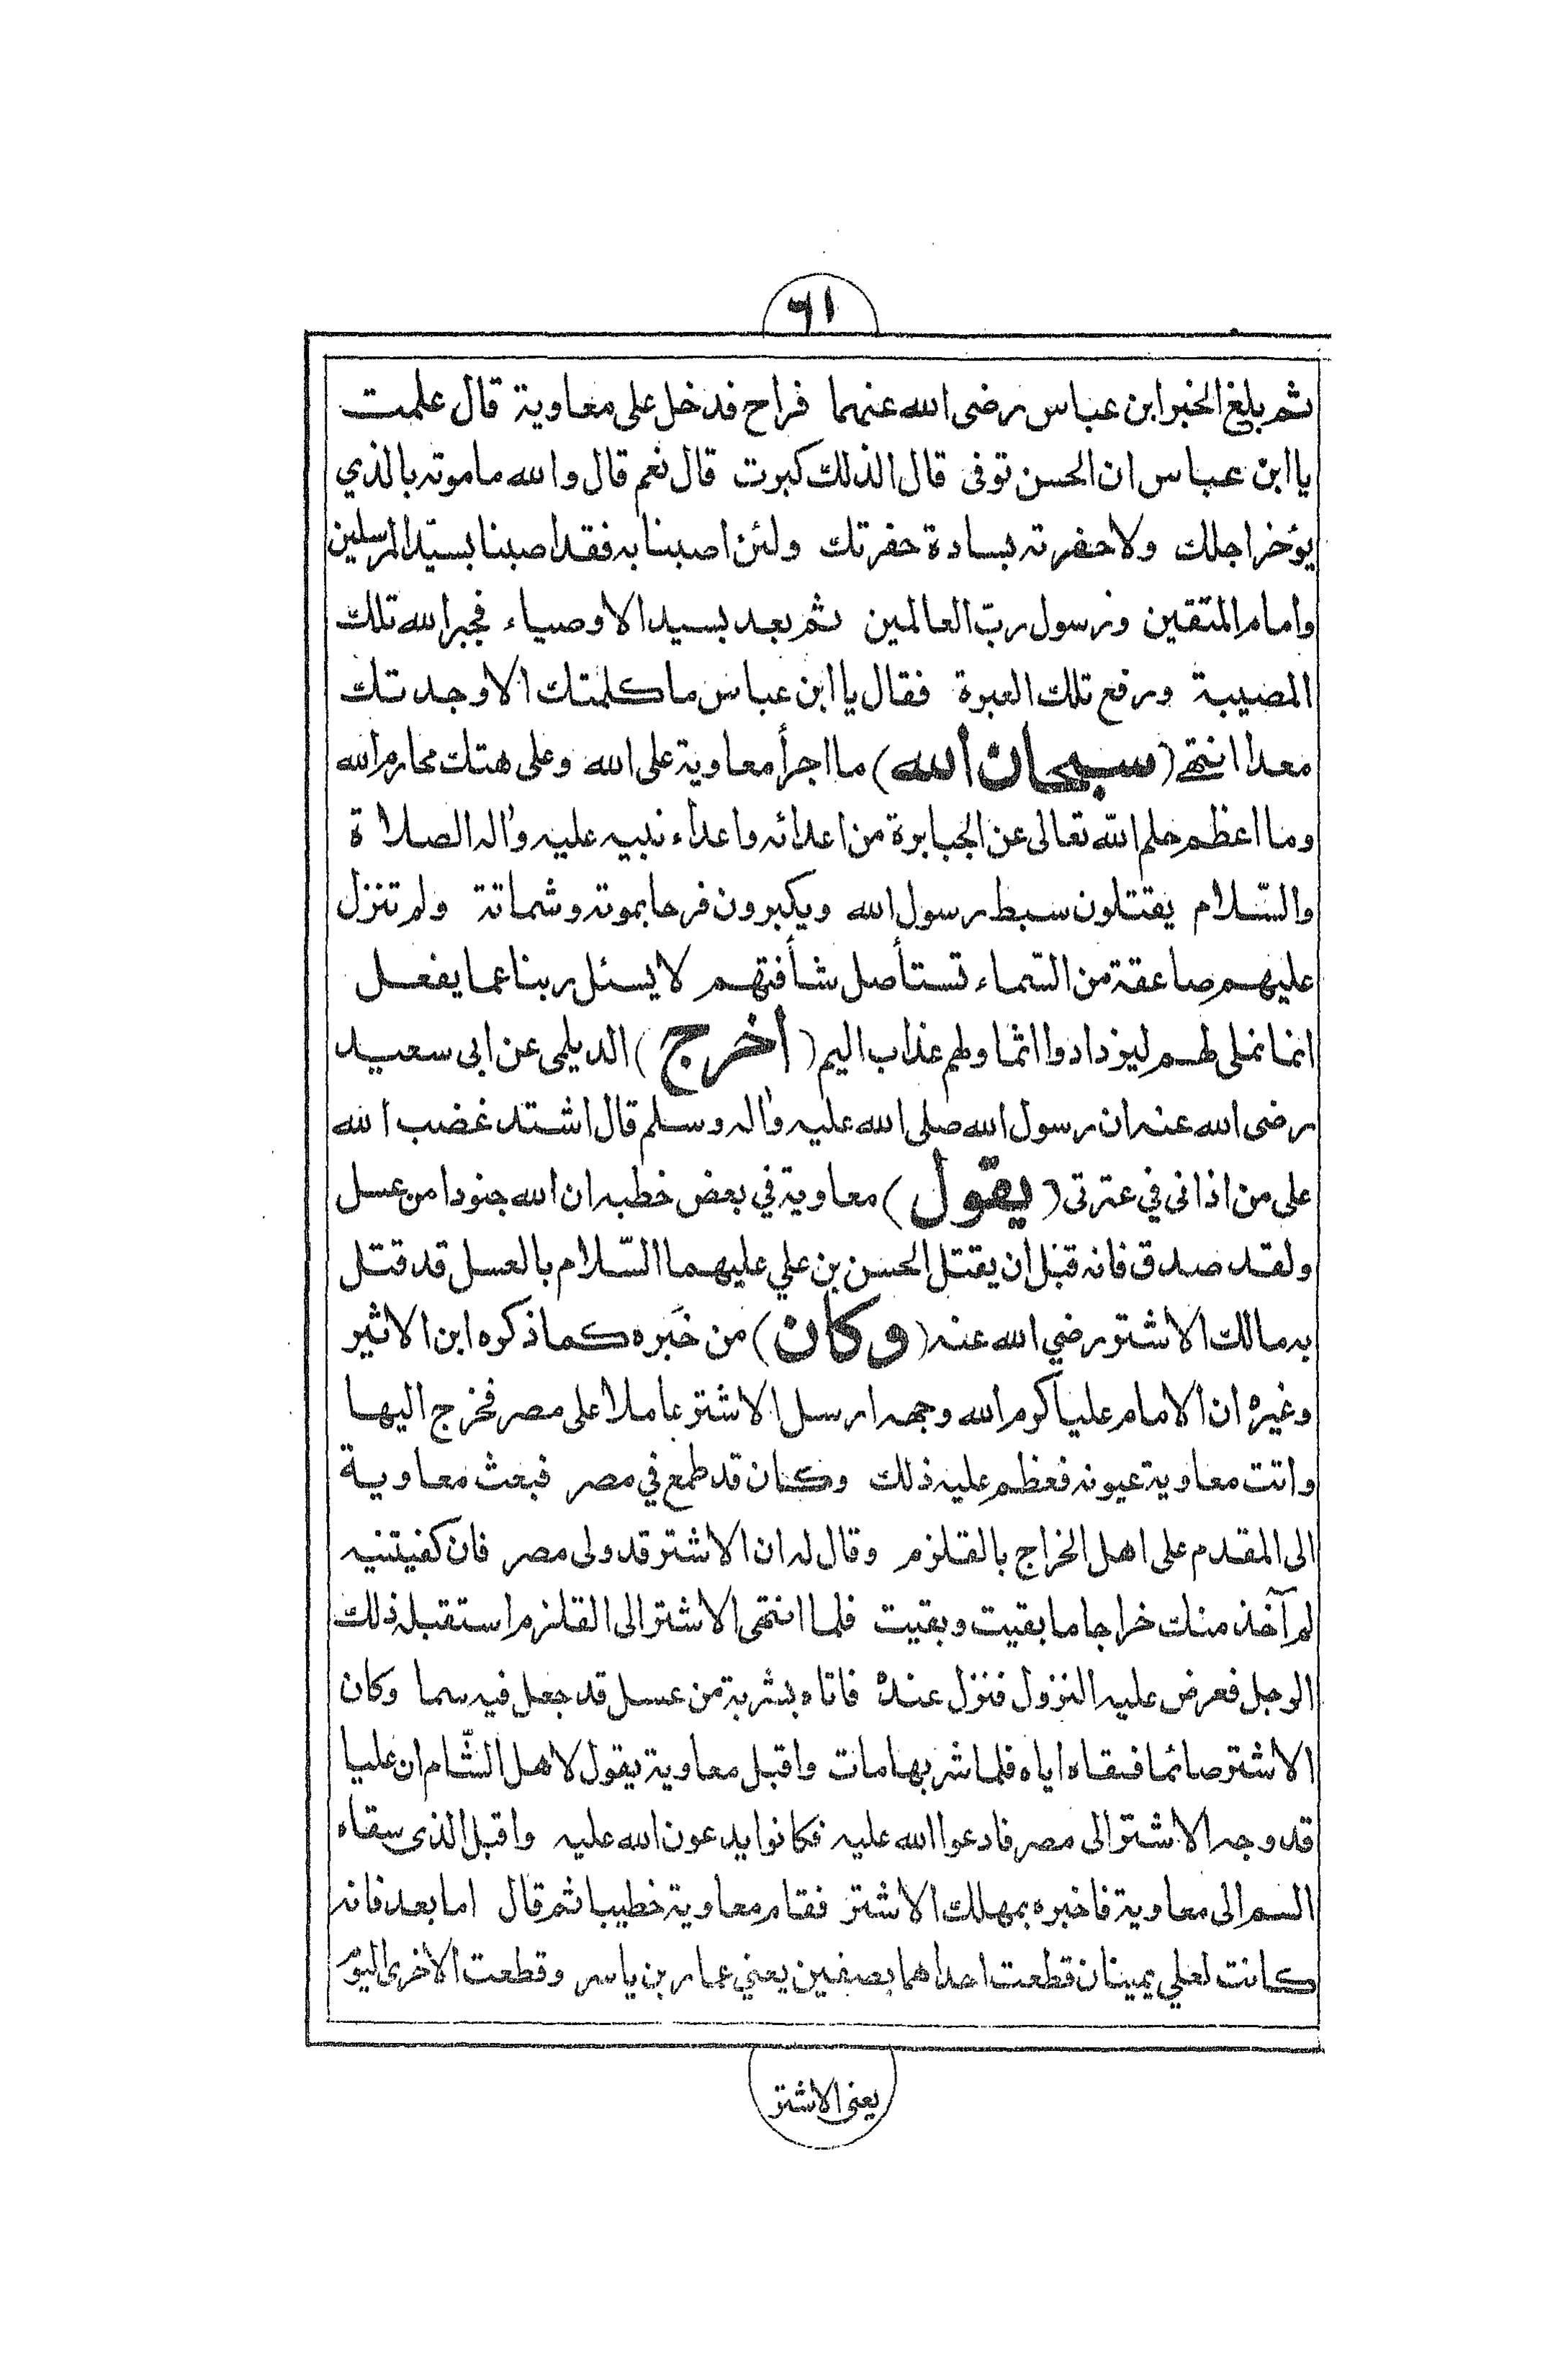 ٦١
ثم بلغ الخبر ابن عباس رضى الله عنهما فراح فدخل على معاوية قال علمت
يا ابن عباس ان الحسن توفى قال الذلك كبرت قال نعم قال والله ما موته بالذي
يؤخر اجلك ولا حفرته بسادة حفرتك ولئن اصبنا به فقد اصبنا بسيّد المرسلين
وامام المتقين ورسول ربّ العالمين ثم بعد بسيد الاوصياء فجبر الله تلك
المصيبة ورفع تلك العبرة فقال يا ابن عباس ما كلمتك الا وجدتك
معدا انتهى (سبحان الله) ما اجرأ معاوية على الله وعلى هتك محارم الله
وما اعظم حلم الله تعالى عن الجبابرة من اعدائه واعداء نبيه عليه واله الصلاة
والسّلام يقتلون سبط رسول الله ويكبرون فرحا بموته وشماتة ولم تنزل
عليهم صاعقة من السّماء تستأصل شأفتهم لا يسئل ربنا عما يفعل
انما نملى لهم ليزدادوا اثما ولهم عذاب اليم (اخرج) الديلمى عن ابى سعيد
رضى الله عنه ان رسول الله صلى الله عليه واله وسلم قال اشتد غضب الله
على من اذانى في عترتى (يقول) معاوية في بعض خطبه ان لله جنودا من عسل
ولقد صدق فانه قبل أن يقتل الحسن بن علي عليهما السّلام بالعسل قد قتل
به مالك الاشتر رضي الله عنه (وكان) من خَبره كما ذكره ابن الاثير
وغيره ان الامام عليا كرم الله وجهه ارسل الاشتر عاملا على مصر فخرج اليها
واتت معاوية عيونه فعظم عليه ذلك وكان قد طمع في مصر فبعث معاوية
الى المقدم على اهل الخراج بالقلزم وقال له ان الاشتر قد ولى مصر فان كفيتنيه
لم آخذ منك خراجا ما بقيت وبقيت فلما انتهى الاشتر الى القلزم استقبله ذلك
الرجل فعرض عليه النزول فنزل عنده فاتاه بشربة من عسل قد جعل فيه سما وكان
الاشتر صائما فسقاه اياه فلما شربها مات واقبل معاوية يقول لاهل الشّام ان عليا
قد وجه الاشتر الى مصر فادعوا الله عليه فكانوا يدعون الله عليه واقبل الذى سقاه
السم الى معاوية فاخبره بمهلك الاشتر فقام معاوية خطيبا ثم قال اما بعد فانه
كانت لعلي يمينان قطعت احداهما بصفين يعني عمار بن ياسر وقطعت الاخرى اليوم
يعنى الاشتر